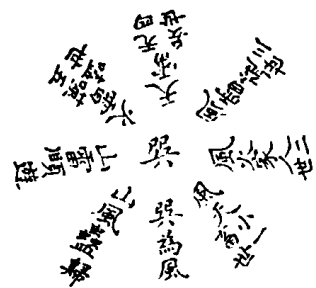 巽
巽為風
風天小畜一世
風火家人二世
風雷益三世
天雷无妄四世
火雷噬嗑五世
山雷頤遊
山風蠱歸